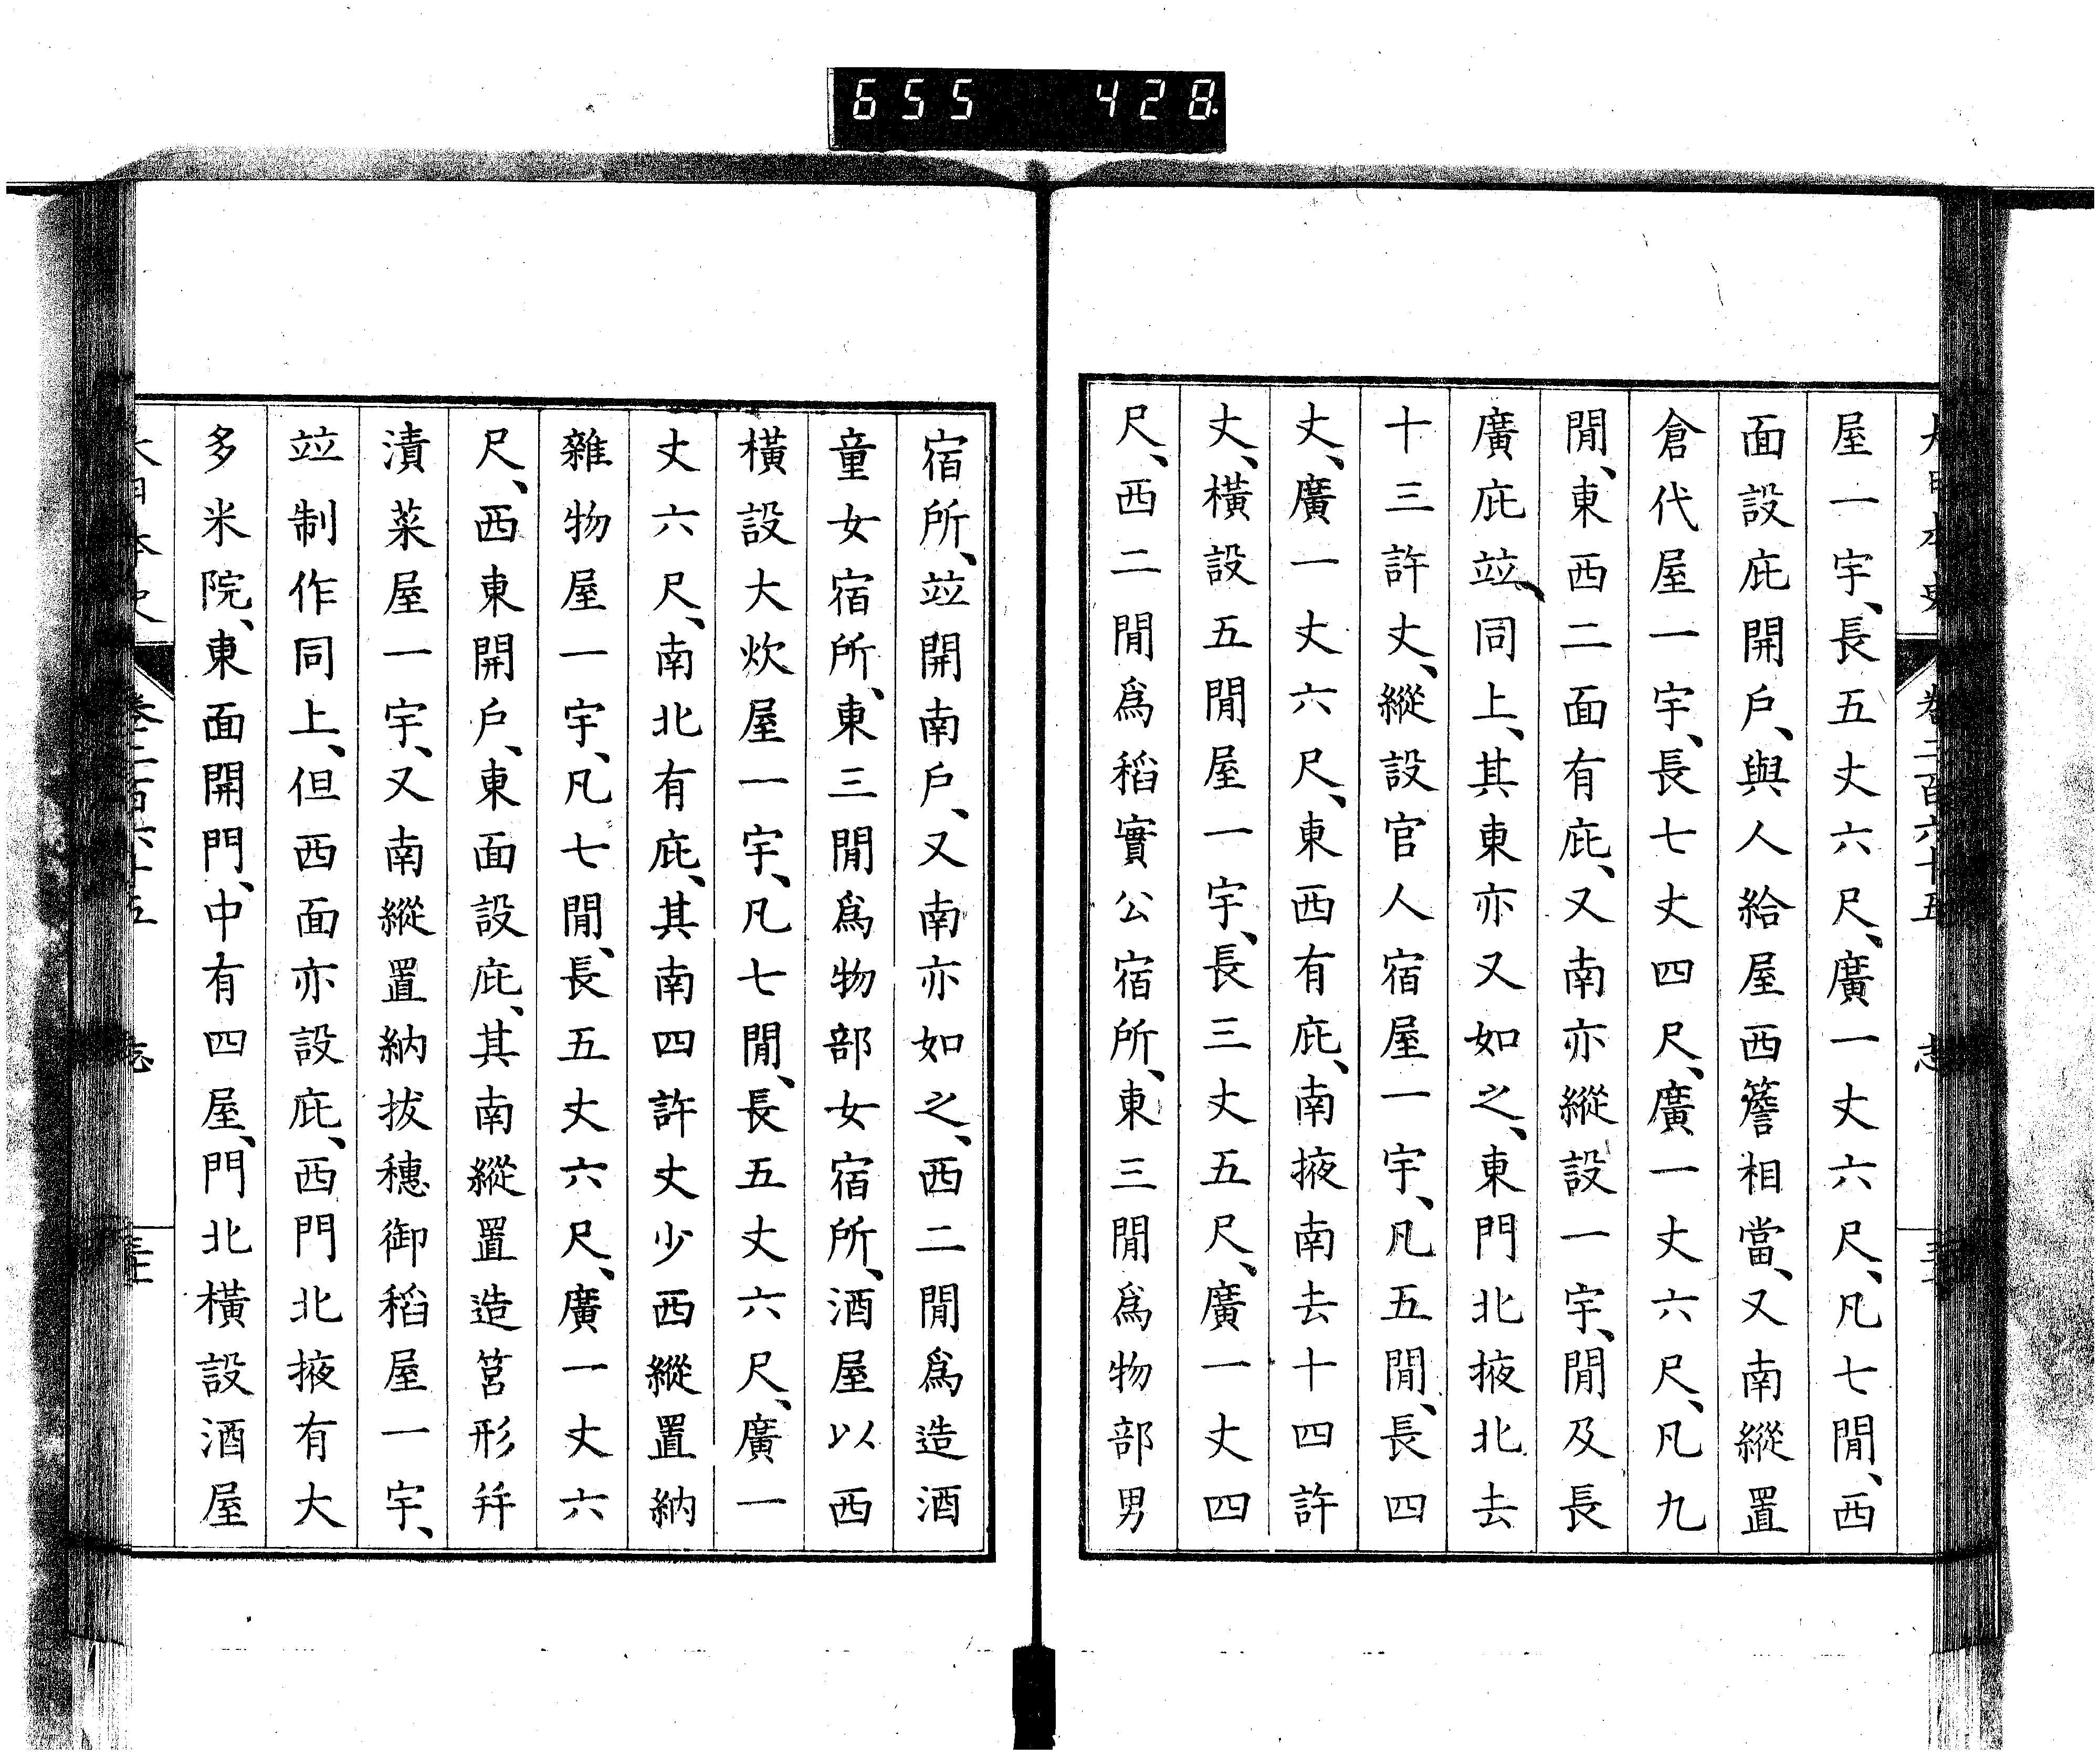 655 428
屋一宇、長五丈六尺、廣一丈六尺、凡七閒、西
面設庇開戶、與人給屋西簷相當、又南縱置
倉代屋一宇、長七丈四尺、廣一丈六尺、凡九
閒、東西二面有庇、又南亦縱設一宇、閒及長
廣庇竝、同上、其東亦又如之、東門北掖北去
十三許丈、縱設官人宿屋一宇、凡五閒、長四
丈、廣一丈六尺、東西有庇、南掖南去十四許
丈、橫設五閒屋一宇、長三丈五尺、廣一丈四
尺、西二閒爲稻實公宿所、東三閒爲物部男
宿所、竝開南戶、又南亦如之、西二閒爲造酒
童女宿所、東三閒爲物部女宿所、酒屋以西
橫設大炊屋一宇、凡七閒、長五丈六尺、廣一
丈六尺、南北有庇、其南四許丈少西縱置納
雜物屋一宇、凡七閒、長五丈六尺、廣一丈六
尺、西東開戶、東面設庇、其南縱置造筥形幷
漬菜屋一宇、又南縱置納拔穗御稻屋一宇、
竝制作同上、但西面亦設庇、西門北掖有大
多米院、東面開門、中有四屋、門北橫設酒屋